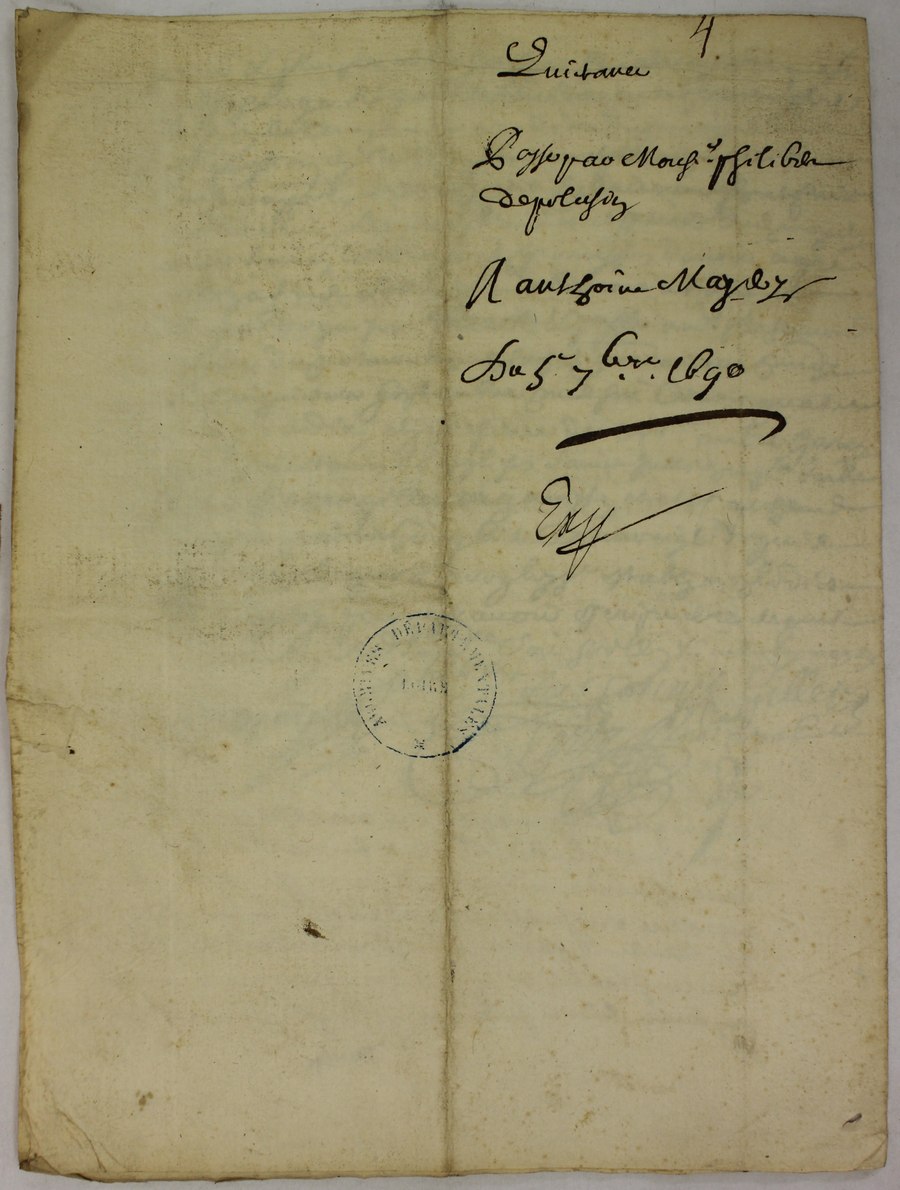 4
Quictance
Passe par Monsr. philibert
Depoluchin
A anthoine Magdz
Du 5e 7bre. 1690
ARCHIVES DÉPARTEMENTALES
LOIRE